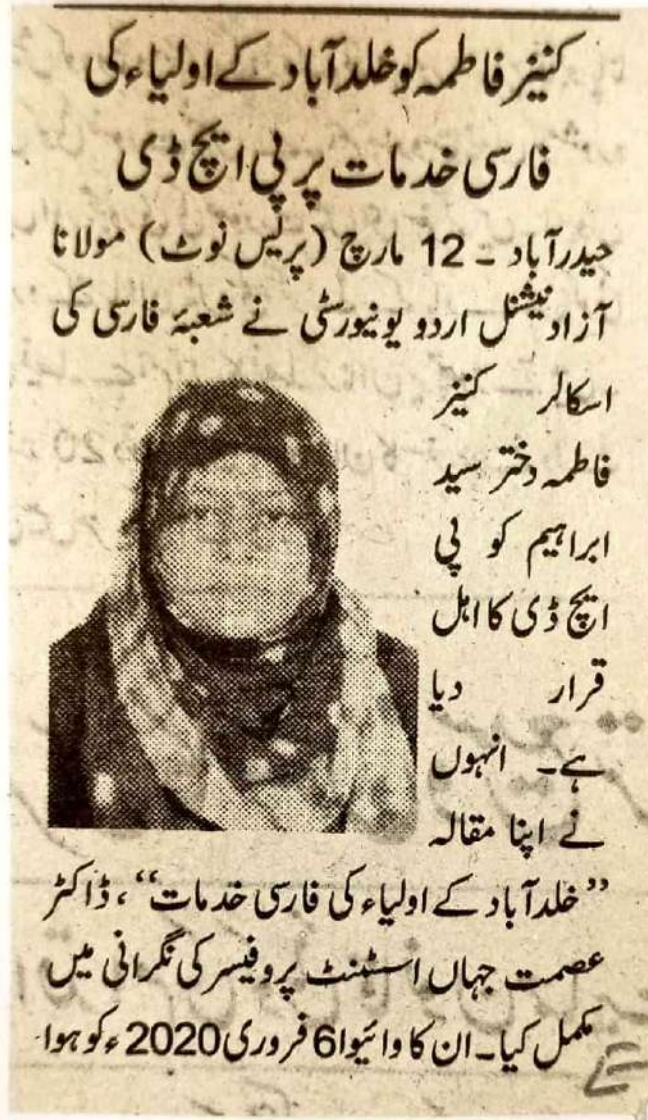 کنیز فاطمہ کو خلد آباد کے اولیاء کی
فارسی خدمات پر پی ایچ ڈی
حیدرآباد ۔ 12 مارچ (پریس نوٹ) مولانا
آزاد نیشنل اردو یونیورسٹی نے شعبۂ فارسی کی
اسکالر کنیز
فاطمہ دختر سید
ابراہیم کو پی
ایچ ڈی کا اہل
قرار دیا
ہے۔ انہوں
نے اپنا مقالہ
”خلد آباد کے اولیاء کی فارسی خدمات“، ڈاکٹر
عصمت جہاں اسسٹنٹ پروفیسر کی نگرانی میں
مکمل کیا۔ ان کا وائیوا 6 فروری 2020ء کو ہوا۔